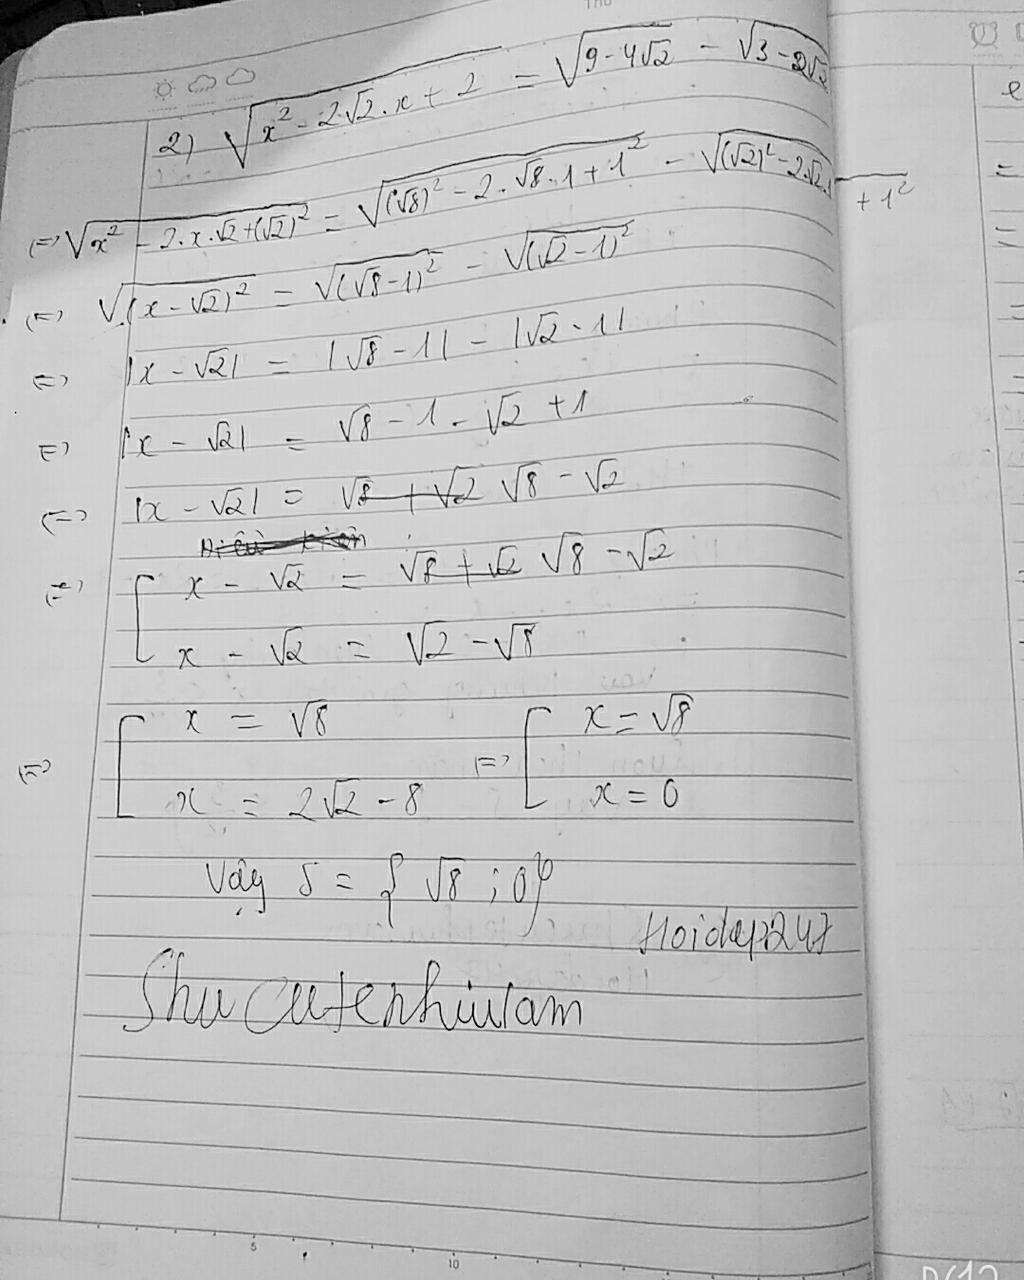 2) √(x² - 2√2.x + 2) = √(9-4√2) - √(3-2√2)
(=) √(x² - 2.x.√2+(√2)²) = √((√8)² - 2.√8.1+1²) - √((√2)² - 2.√2.1 +1²)
(=) √((x-√2)²) = √((√8-1)²) - √((√2-1)²)
(=) |x - √2| = |√8-1| - |√2-1|
(=) |x - √2| = √8 - 1 - √2 + 1
(=) |x - √2| = √8 + √2 √8 - √2
(=) [ x - √2 = √8 + √2 √8 - √2
x - √2 = √2 - √8
(=) [ x = √8 (=) [ x = √8
x = 2√2 - 8 x = 0
Vậy S = { √8 ; 0}
Hoidap247
Shucutenhiulam
5 10